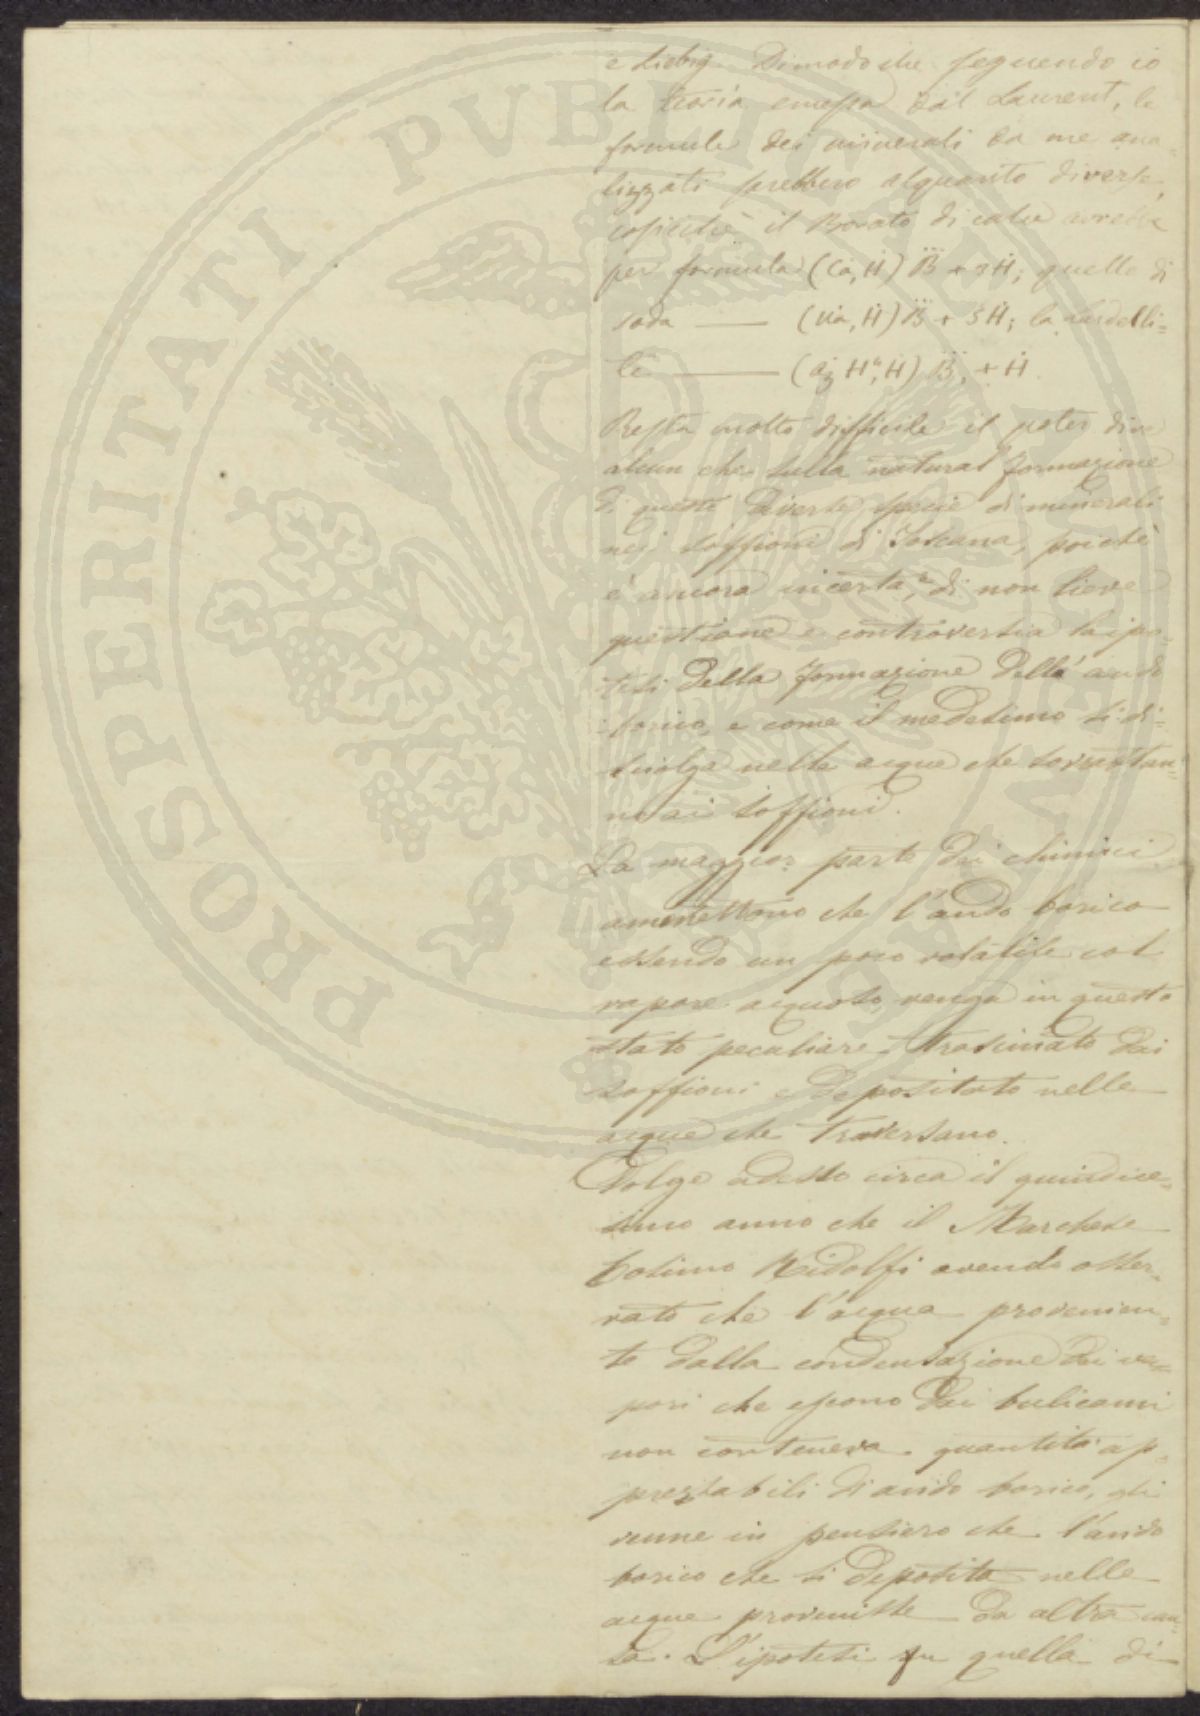 e Liebig. Dimodoche seguendo io
la teoria emessa dal Laurent, le
formule dei minerali da me ana-
lizzati sarebbero alquanto diverse,
cosicchè il Borato di calce avrebbe
per formula (Ċa, Ḣ) B⃛ + 3Ḣ; quello di
soda — (Ṅa, Ḣ) B⃛ + 3Ḣ; la Lardelli=
te — Ḣ) B⃛, + Ḣ.
Resta molto difficile il poter dire
alcun che sulla natural formazione
di queste diverse specie di minerali
nei soffioni di Toscana, poichè
è ancora incerta, e di non lieve
questione e controversia la ipo-
tesi della formazione dell'acido
borico, e come il medesimo si di-
sciolga nelle acque che sovrastan-
no ai soffioni.
La maggior parte dei chimici
ammettono che l'acido borico
essendo un poco volatile col
vapore acquoso, venga in questo
stato peculiare trascinato dai
soffioni e depositato nelle
acque che traversano.
Volge adesso circa il quindice-
simo anno che il Marchese
Cosimo Ridolfi avendo osser-
vato che l'acqua provenien-
te dalla condensazione dei va-
pori che escono dai bulicami
non conteneva quantità ap-
prezzabili di acido borico, gli
venne in pensiero che l'acido
borico che si deposita nelle
acque provenisse da altra cau-
sa. L'ipotesi fu quella di
PROSPERITATI PUBLICAE AUGENDAE